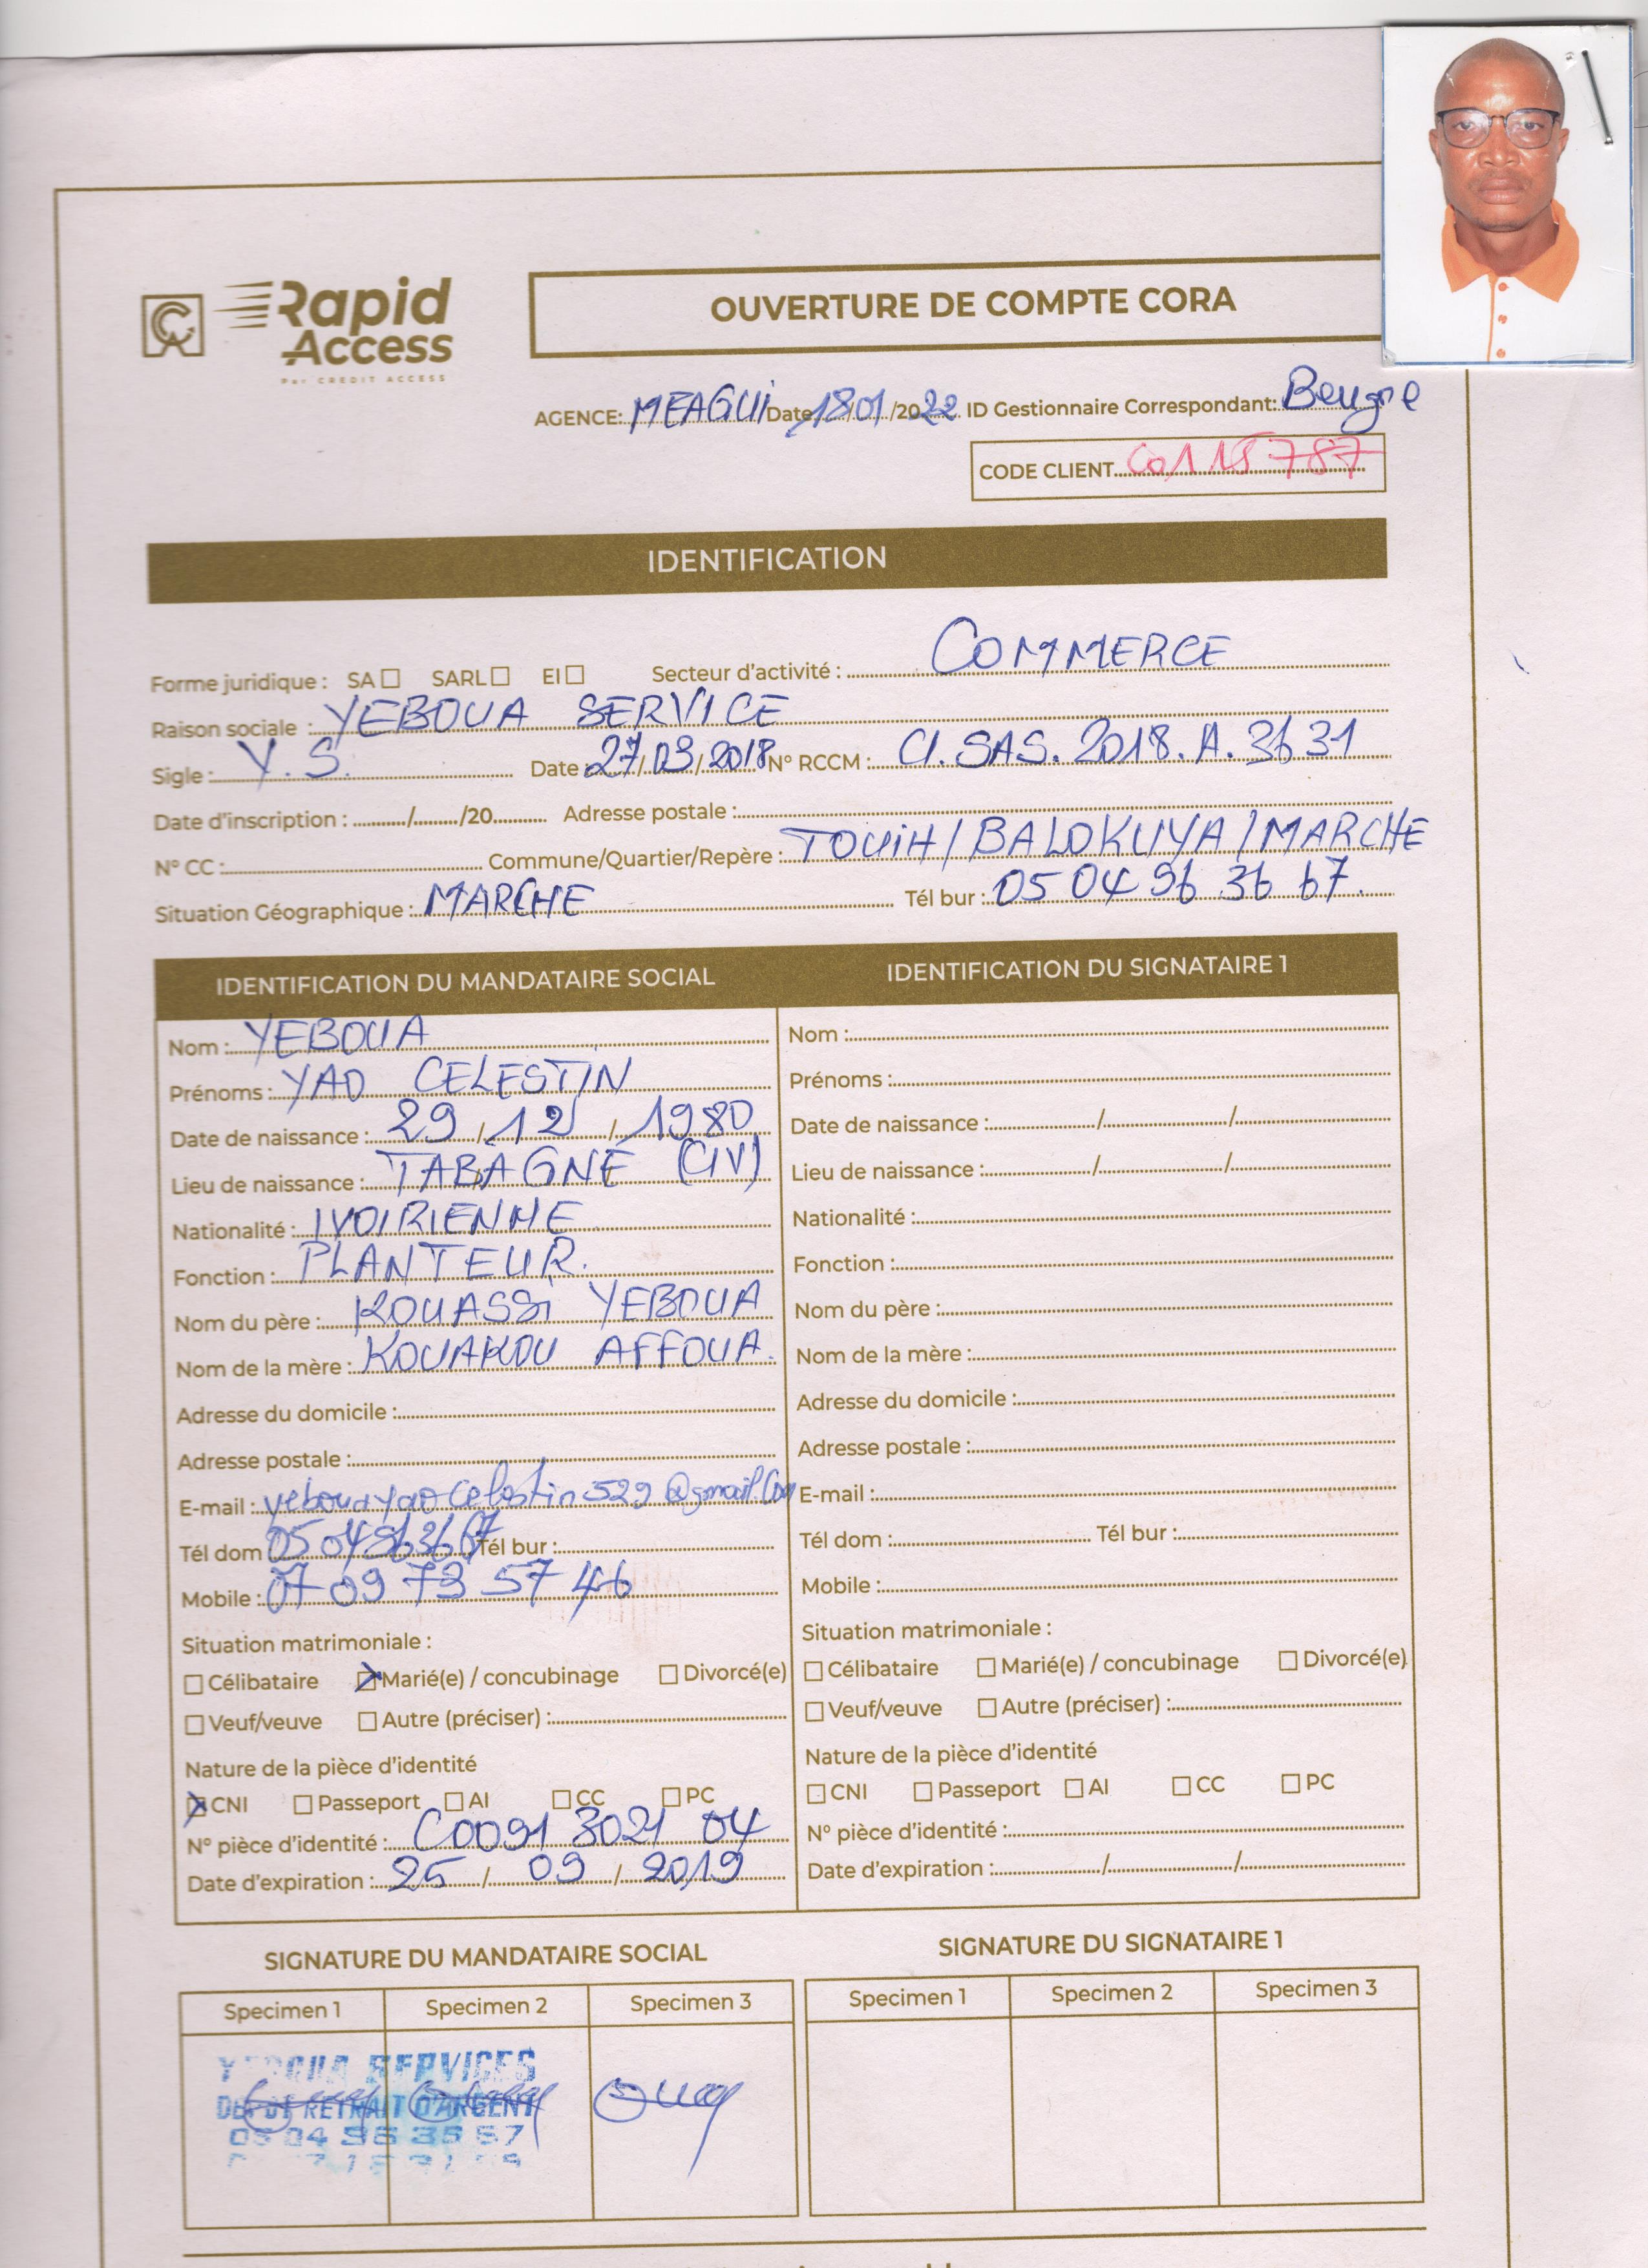 Rapid
Access
Par CREDIT ACCESS
OUVERTURE DE COMPTE CORA
AGENCE: MEAGUI Date 18/01/2022 ID Gestionnaire Correspondant: Beugre
CODE CLIENT C0115787
IDENTIFICATION
Forme juridique : SA SARL EI Secteur d'activité : COMMERCE
Raison sociale : YEBOUA SERVICE
Sigle : Y.S. Date : 27/03/2018 N° RCCM : CI.SAS.2018.A.3631
Date d'inscription : ........../........./20........... Adresse postale :
N° CC : Commune/Quartier/Repère : TOUIH/BALOKUYA/MARCHE
Situation Géographique : MARCHE Tél bur : 05 04 96 36 67.
IDENTIFICATION DU MANDATAIRE SOCIAL
Nom : YEBOUA
Prénoms : YAO CELESTIN
Date de naissance : 29/12/1980
Lieu de naissance : TABAGNE (CIV)
Nationalité : IVOIRIENNE
Fonction : PLANTEUR.
Nom du père : KOUASSI YEBOUA
Nom de la mère : KOUAKOU AFFOUA.
Adresse du domicile :
Adresse postale :
E-mail : yebouayaocelestin529@gmail.com
Tél dom 0504963667 Tél bur :
Mobile : 07 09 73 57 46
Situation matrimoniale :
Célibataire Marié(e) / concubinage Divorcé(e)
Veuf/veuve Autre (préciser) :
Nature de la pièce d'identité
CNI Passeport AI CC PC
N° pièce d'identité : C0091 3021 04
Date d'expiration : 25 / 09 / 2019
IDENTIFICATION DU SIGNATAIRE 1
Nom :
Prénoms :
Date de naissance : / /
Lieu de naissance : / /
Nationalité :
Fonction :
Nom du père :
Nom de la mère :
Adresse du domicile :
Adresse postale :
E-mail :
Tél dom : Tél bur :
Mobile :
Situation matrimoniale :
Célibataire Marié(e) / concubinage Divorcé(e)
Veuf/veuve Autre (préciser) :
Nature de la pièce d'identité
CNI Passeport AI CC PC
N° pièce d'identité :
Date d'expiration : / /
SIGNATURE DU MANDATAIRE SOCIAL
Specimen 1 Specimen 2 Specimen 3
SERVICES
RETRAIT D'ARGENT
SIGNATURE DU SIGNATAIRE 1
Specimen 1 Specimen 2 Specimen 3